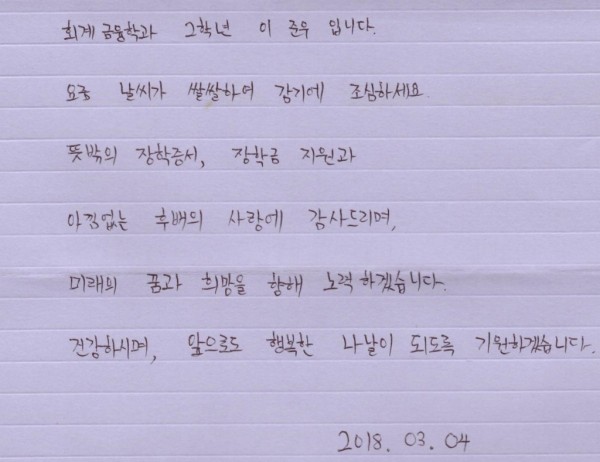 회계금융학과 2학년 이준우 입니다.
요즘 날씨가 쌀쌀하여 감기에 조심하세요.
뜻밖의 장학증서, 장학금 지원과
아낌없는 후배의 사랑에 감사드리며,
미래의 꿈과 희망을 향해 노력하겠습니다.
건강하시며, 앞으로도 행복한 나날이 되도록 기원하겠습니다.
2018. 03. 04